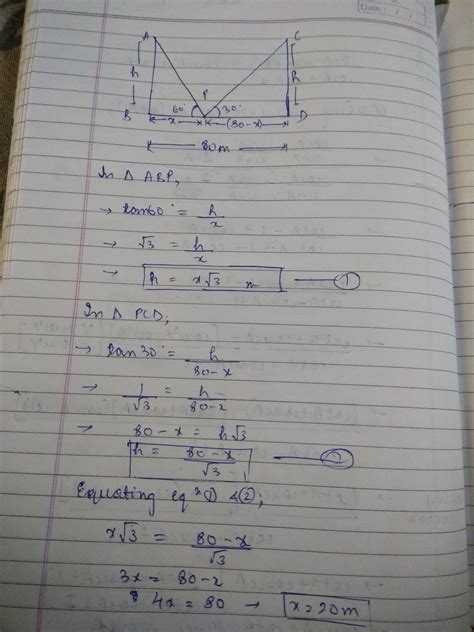 Date : / /
A C
h h
P
60° 30°
B x (80-x) D
80m
In Δ ABP,
→ tan60° = h/x
→ √3 = h/x
→ h = x√3 m — ①
In Δ PCD,
→ tan30° = h/80-x
→ 1/√3 = h/80-x
→ 80-x = h√3
h = 80-x/√3 — ②
Equating eqⁿ ① & ②,
x√3 = 80-x/√3
3x = 80-x
4x = 80 → x=20m